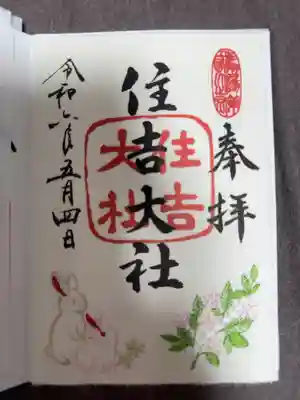 奉拝
住吉大社
住吉
大社
令和六年五月四日